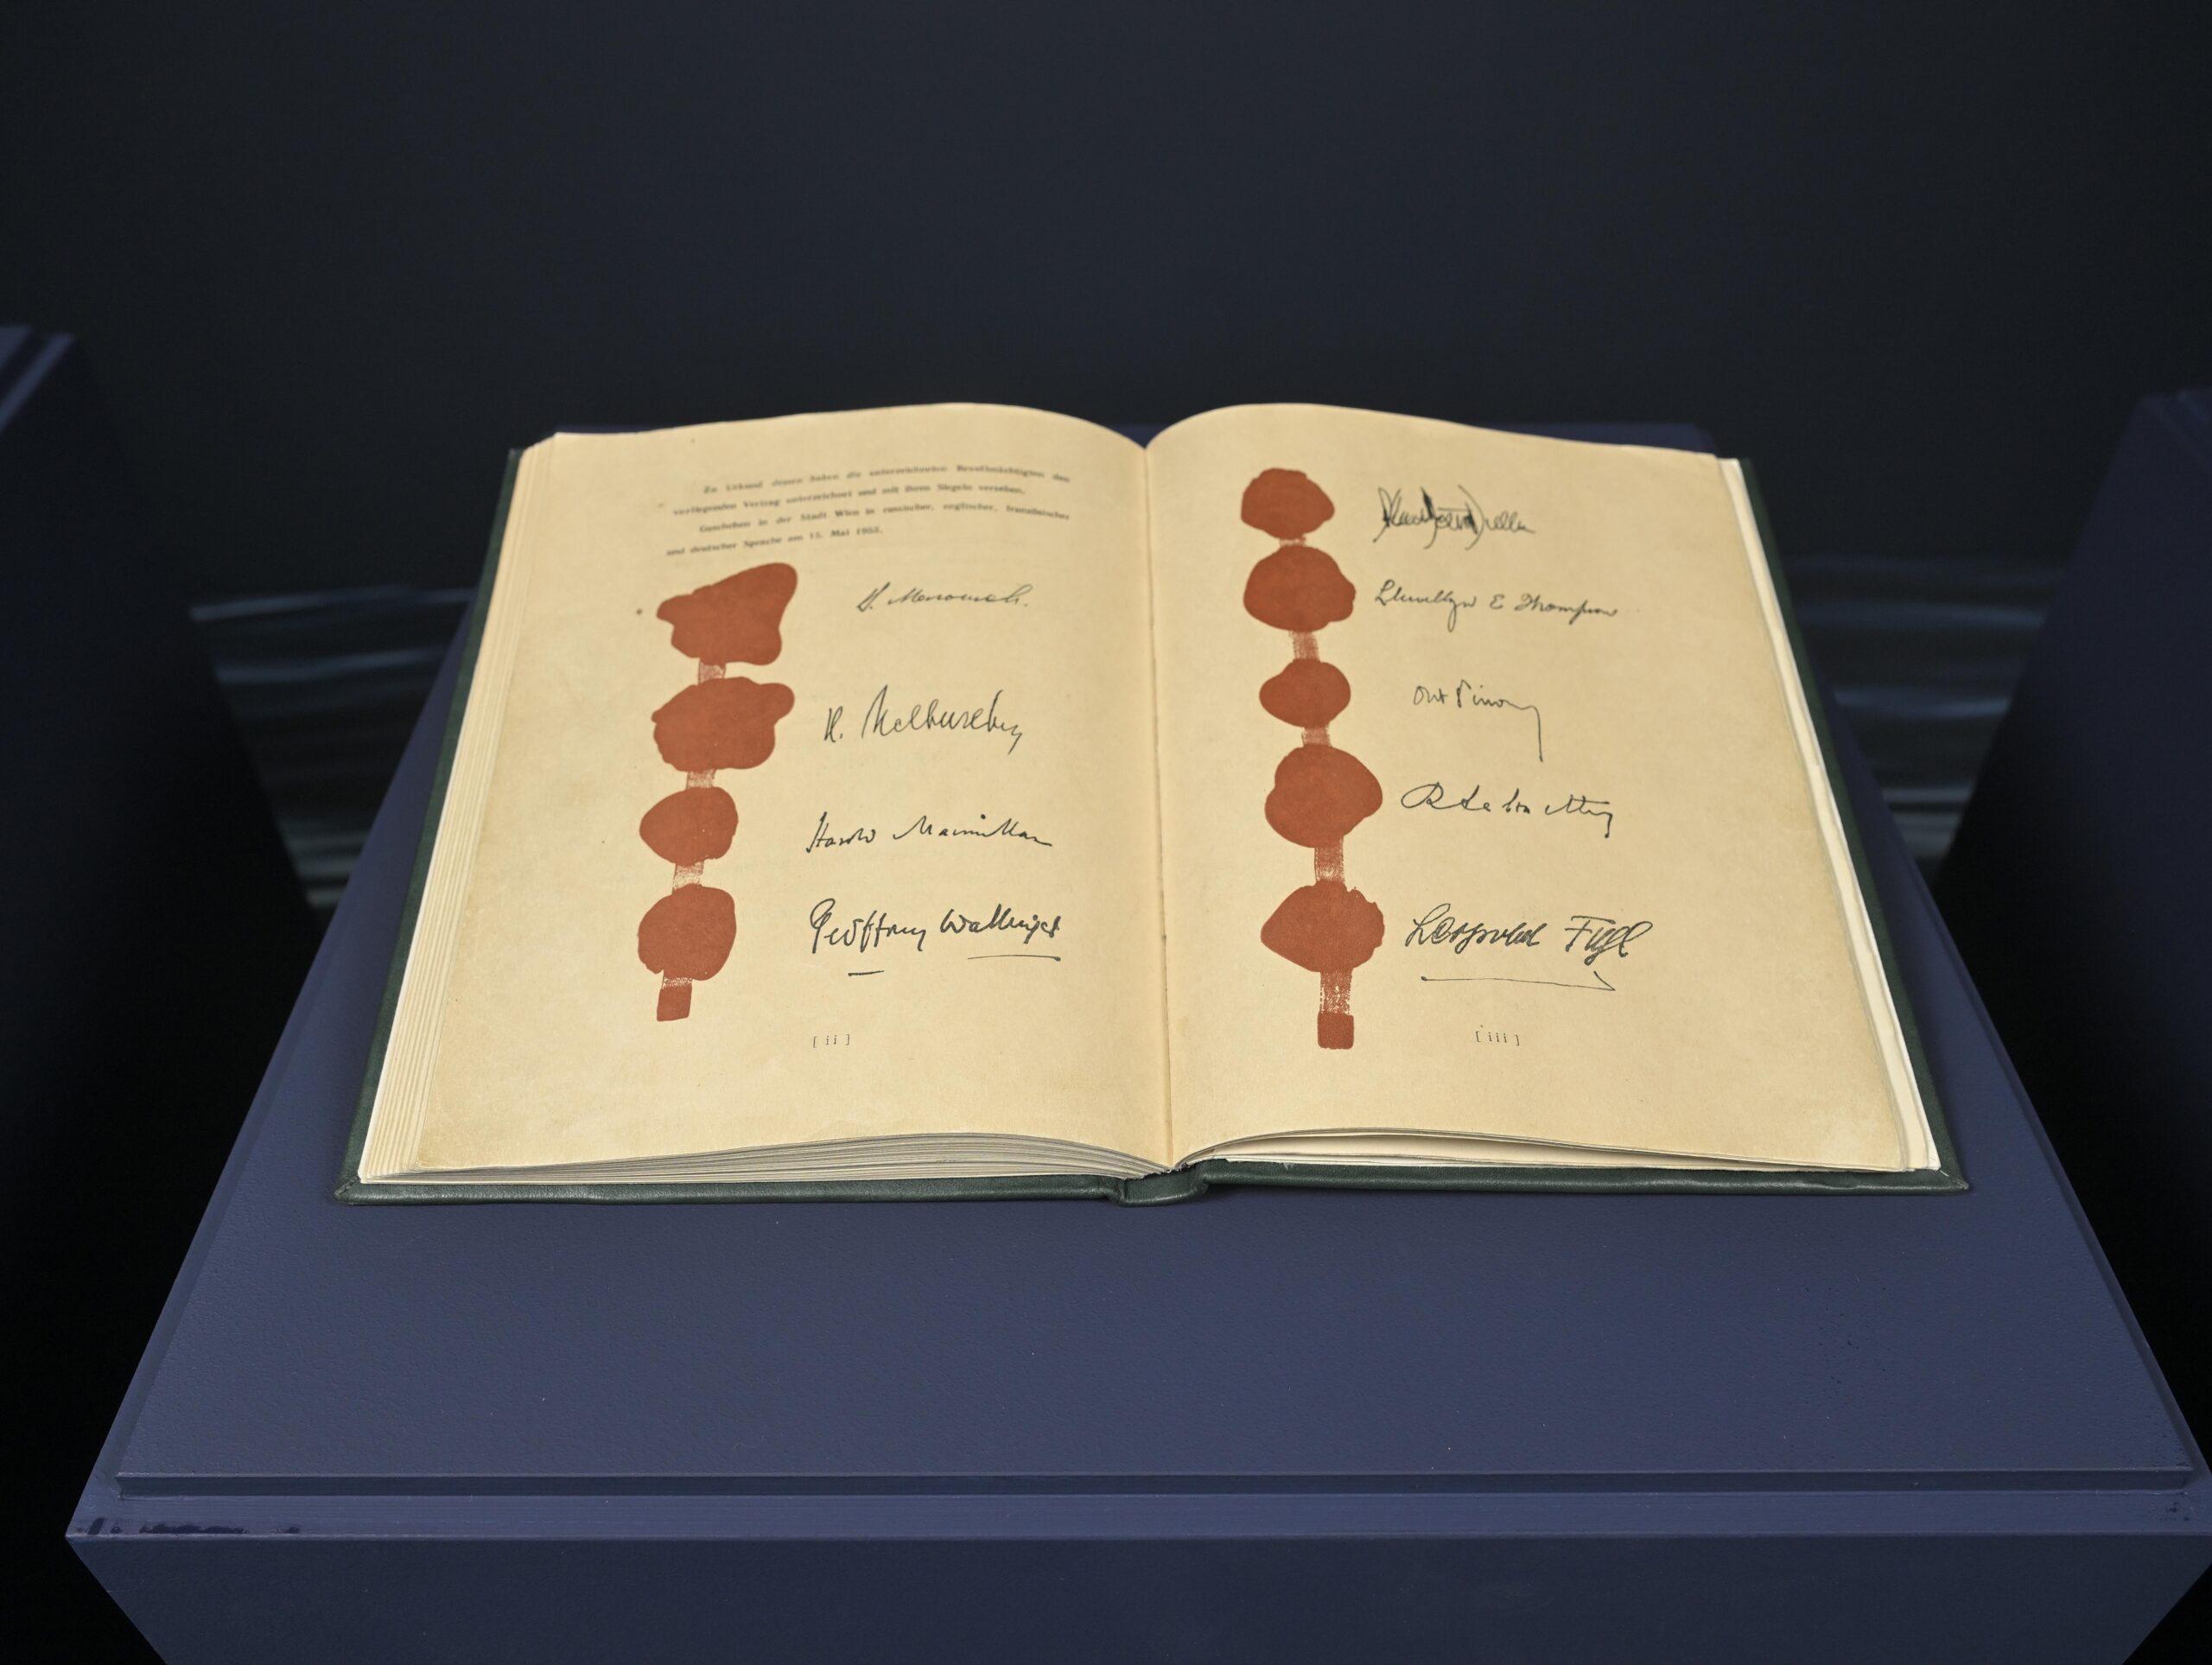 Zu Urkund dessen haben die unterzeichneten Bevollmächtigten den
vorliegenden Vertrag unterzeichnet und mit ihren Siegeln versehen.
Geschehen in der Stadt Wien in russischer, englischer, französischer
und deutscher Sprache am 15. Mai 1955.
Harold Macmillan
Geoffrey Wallinger
[ii]
Llewellyn E Thompson
Leopold Figl
[iii]